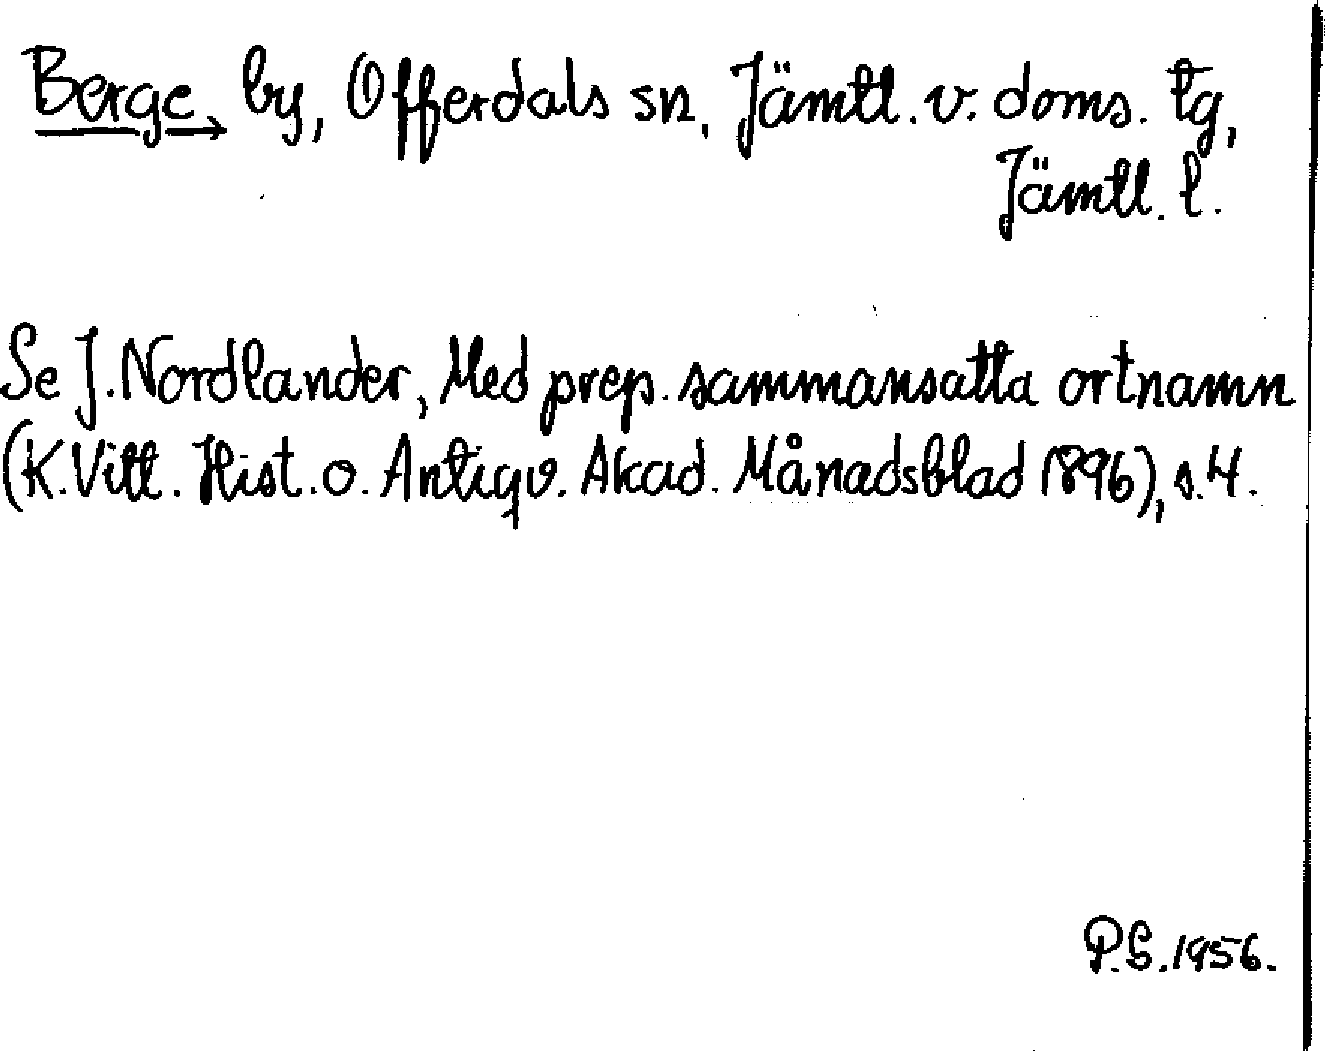 Berge, by, Offerdals sn, Jämtl. v. doms. tg,
Jämtl. l.
Se J. Nordlander, Med prep. sammansatta ortnamn
(K. Vitt. Hist. o. Antiqv. Akad. Månadsblad 1896), s. 4.
P.S. 1956.